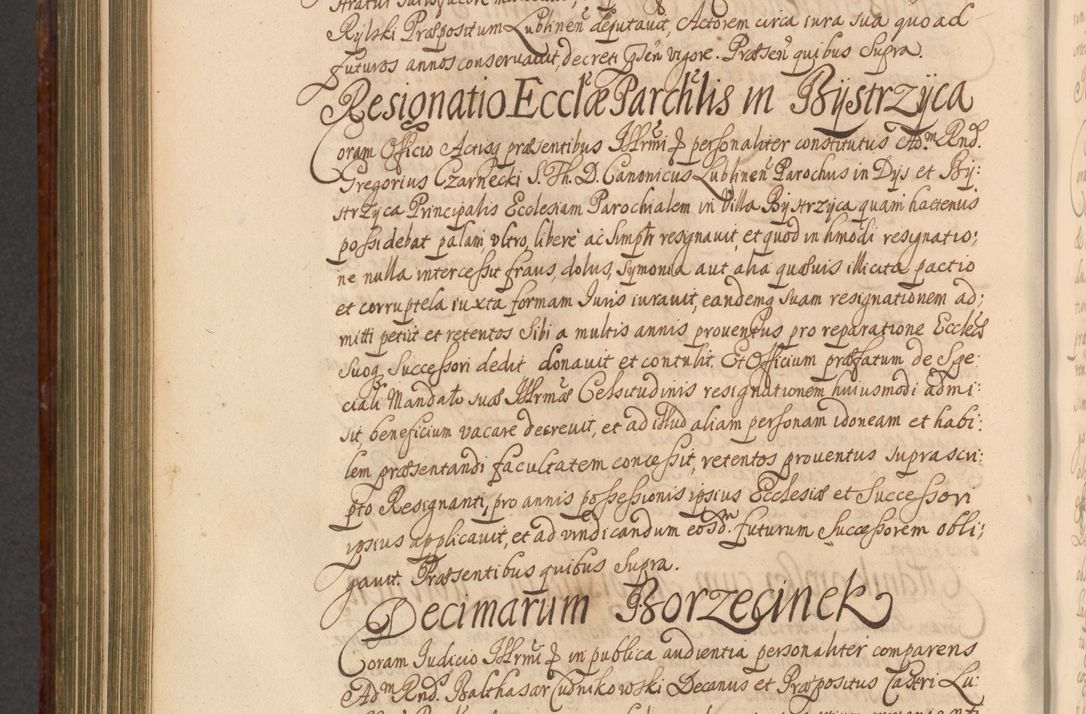 Rylski Præpositum Lublinen̄ deputavit, Actorem circa iura sua quo ad
futuros annos conservavit, decreti p̱sen̄ vigore. Præsen̄ quibus supra.
Resignatio Ecclæ Parchlis in Bÿstrzÿca
Coram Officio Actisq præsentibus Illrmi & personaliter constitutus Ad.m Rnd.
Gregorius Czarnecki S. Th. D. Canonicus Lublinen̄ Parochus in Dys et Bÿ:
strzÿca Principalis Ecclesiam Parochialem in Villa Bÿstrzÿca quam hactenus
possidebat palam, vltro, libere ac simplr resignavit, et quod in hmodi resignatio;
ne nulla intercessit fraus, dolus, symonia aut alia quæuis illicita pactio
et corruptela iuxta formam Iuris iuravit, eandemq suam resignationem ad;
mitti petiit et retentos sibi a multis annis proventus pro reparatione Eccleæ
suoq Successori dedit donavit et contulit. Et Officium præfatum de Spe:
ciali Mandato suæ Illrmæ Celsitudinis resignationem huiusmodi admi:
sit, beneficium vacare decrevit, et ad illud aliam personam idoneam et habi:
lem præsentandi facultatem concessit, retentos proventus suprascri:
pto Resignanti, pro annis possessionis ipsius Ecclesiæ et Successori
ipsius applicavit, et ad vindicandum eosd.m futurum Successorem obli;
gavit. Præsentibus quibus supra.
Decimarum Borzecinek
Coram Iudicio Illrmi & in publica audientia personaliter comparens
Ad.m Rnd. Balthasar Cudnikowski Decanus et Præpositus Castri Lu: